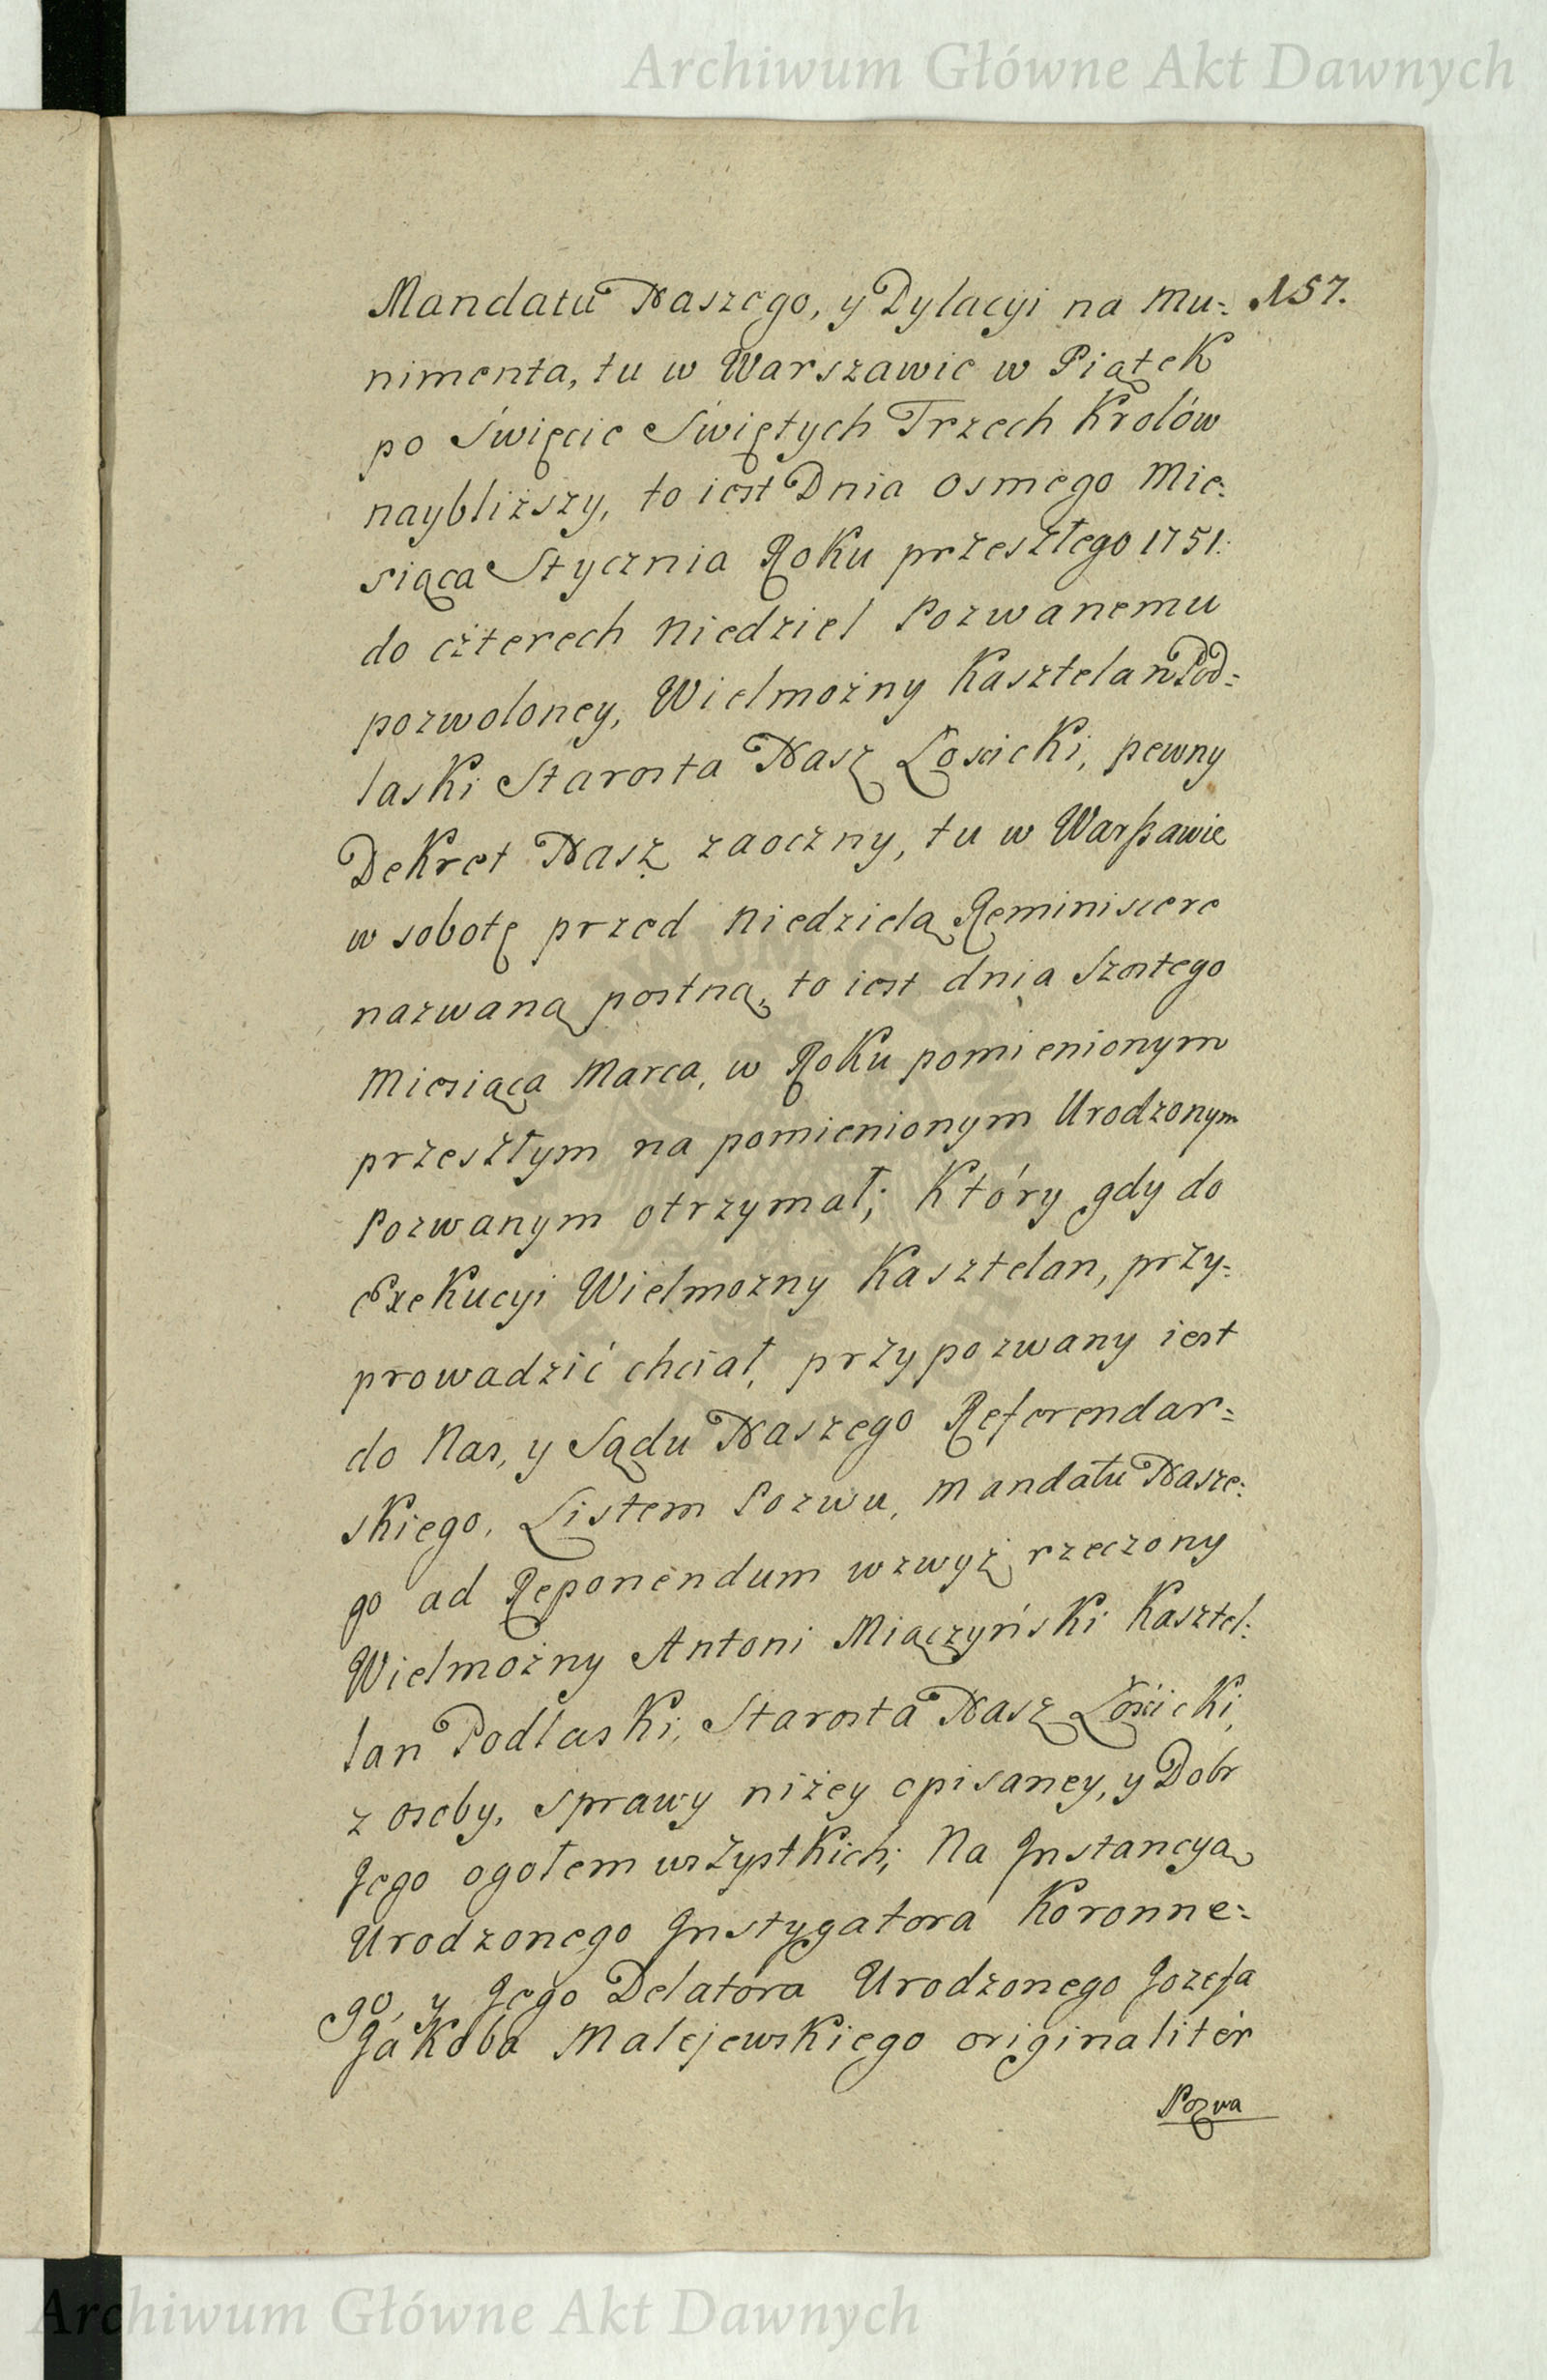 Archiwum Główne Akt Dawnych
Mandatu Naszego, y Dylacyi na Mu= 157.
nimenta, tu w Warszawie w Piątek
po Święcie Świętych Trzech Krolów
naybliższy, to iest Dnia osmego Mie=
siąca Stycznia Roku przeszłego 1751.
do czterech Niedziel Pozwanemu
pozwoloney, Wielmożny Kasztelan Pod=
laski Starosta Nasz Łosicki, pewny
Dekret Nasz zaoczny, tu w Warszawie
w sobotę przed Niedzielą Reminiscere
nazwaną postną, to iest dnia Szostego
Miesiąca Marca, w Roku pomienionym
przeszłym na pomienionym Urodzonym
Pozwanym otrzymał; Który gdy do
Exekucyi Wielmozny Kasztelan, przy=
prowadzić chciał, przypozwany iest
do Nas, y Sądu Naszego Referendar=
skiego, Listem Pozwu, Mandatu Nasze=
go ad Reponendum wzwyż rzeczony
Wielmożny Antoni Miączyński Kasztel=
lan Podlaski, Starosta Nasz Łosicki,
z osoby, sprawy niżey opisaney, y Dobr
Jego ogołem wszystkich; Na Instancyą
Urodzonego Instygatora Koronne=
go, y Jego Delatora Urodzonego Jozefa
Jakoba Malejewskiego originaliter
Pozwa
Archiwum Główne Akt Dawnych